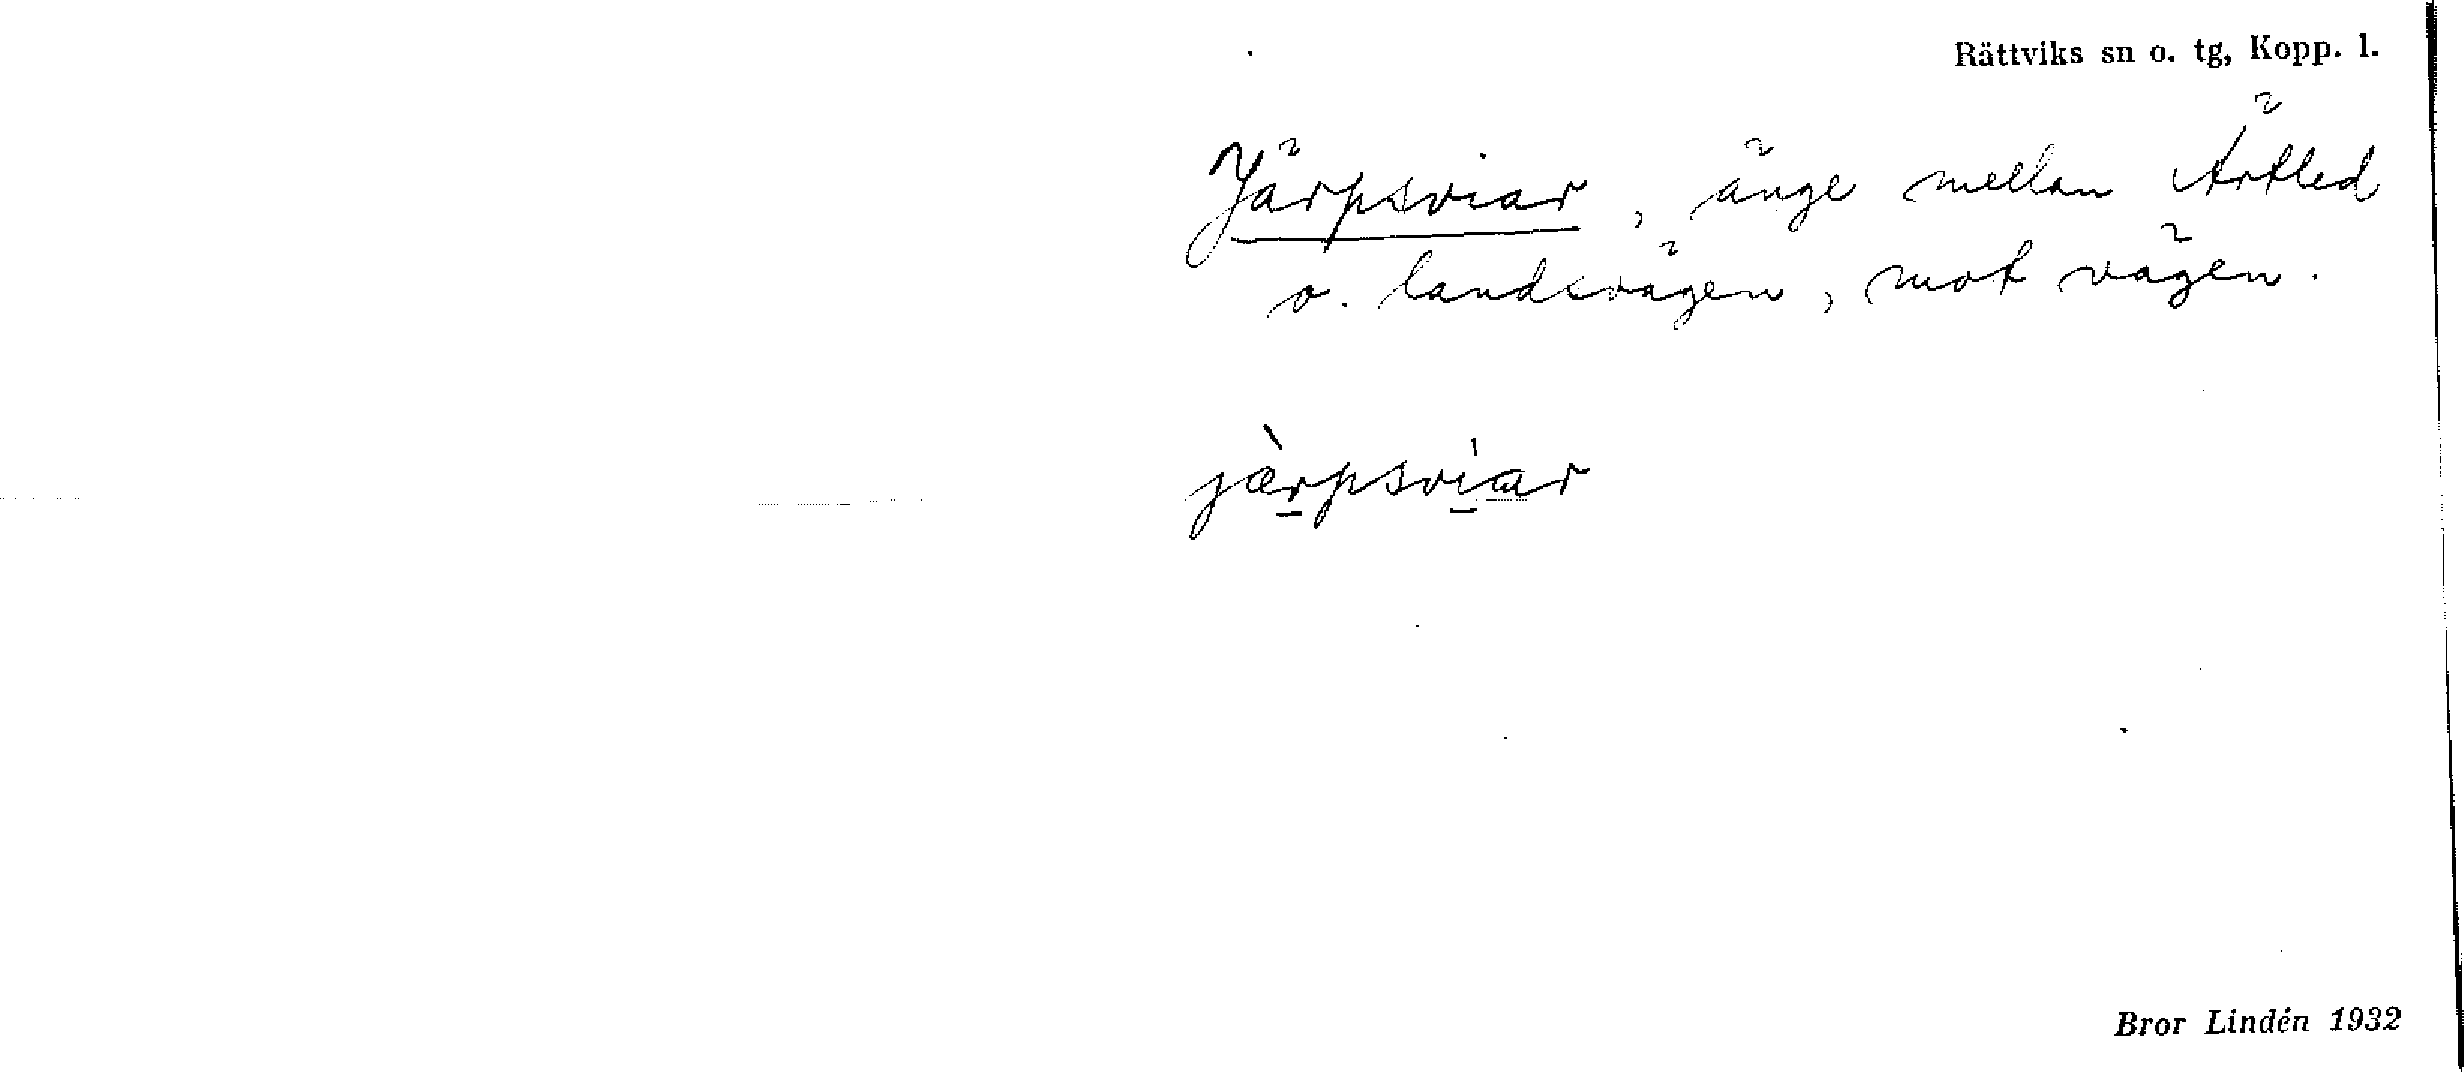 Rättviks sn o. tg, Kopp. l.
Järpsviar, änge mellan Ärtled
o. landsvägen, mot vägen.
jæ̀rpsvíar
Bror Lindén 1932